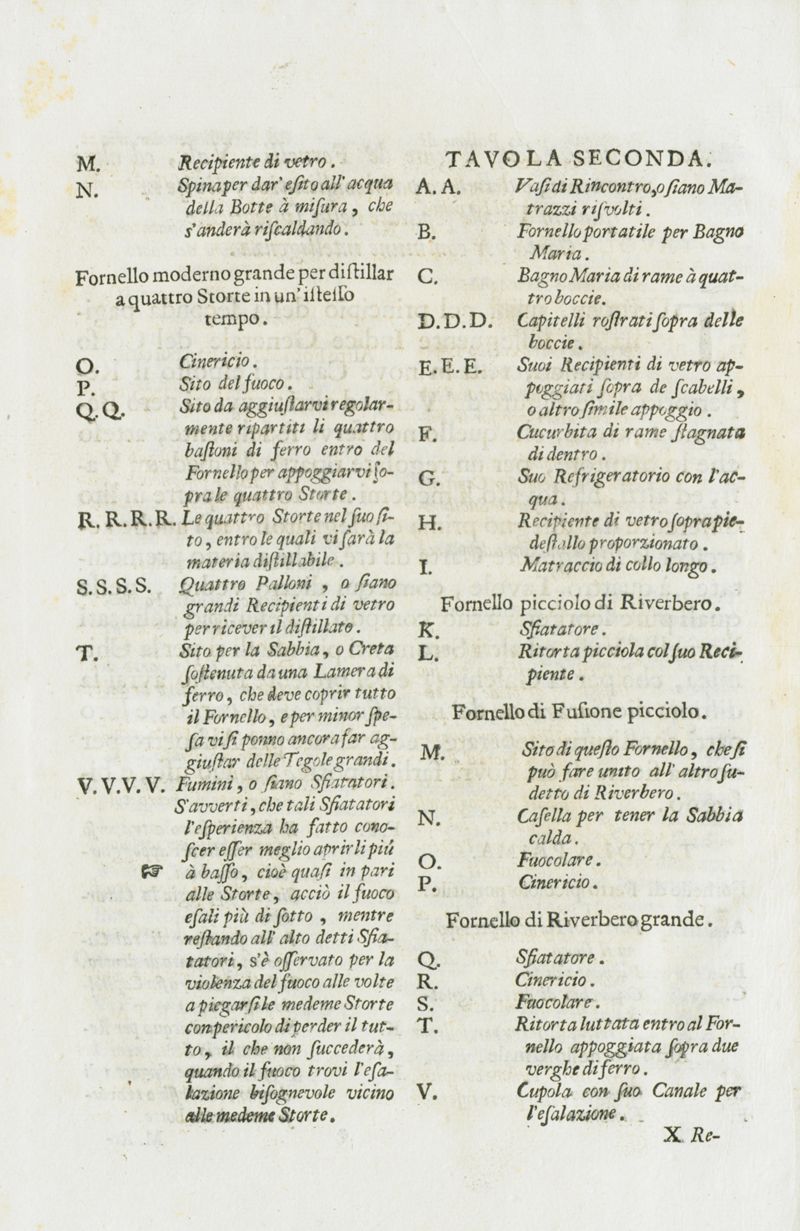 M. Recipiente di vetro.
N. Spina per dar' eſito all' acqua
della Botte à miſura, che
s'anderà riſcaldando.
Fornello moderno grande per diſtillar
a quattro Storte in un' iſteſſo
tempo.
O. Cinericio.
P. Sito del fuoco.
Q. Q. Sito da aggiuſtarvi regolar-
mente ripartiti li quattro
baſtoni di ferro entro del
Fornello per appoggiarvi ſo-
pra le quattro Storte.
R. R. R. R. Le quattro Storte nel ſuo ſi-
to, entro le quali vi ſarà la
materia diſtillabile.
S. S. S. S. Quattro Palloni, o ſiano
grandi Recipienti di vetro
per ricever il diſtillato.
T. Sito per la Sabbia, o Creta
ſoſtenuta da una Lamera di
ferro, che deve coprir tutto
il Fornello, e per minor ſpe-
ſa vi ſi ponno ancora far ag-
giuſtar delle Tegole grandi.
V. V. V. V. Fumini, o ſiano Sfiatatori.
S'avverti, che tali Sfiatatori
l'eſperienza ha fatto cono-
ſcer eſſer meglio aprirli più
☞ à baſſo, cioè quaſi in pari
alle Storte, acciò il fuoco
eſali più di ſotto, mentre
reſtando all' alto detti Sfia-
tatori, s'è oſſervato per la
violenza del fuoco alle volte
a piegarſi le medeme Storte
con pericolo di perder il tut-
to, il che non ſuccederà,
quando il fuoco trovi l'eſa-
lazione biſognevole vicino
alle medeme Storte.
TAVOLA SECONDA.
A. A. Vaſi di Rincontro, o ſiano Ma-
trazzi riſvolti.
B. Fornello portatile per Bagno
Maria.
C. Bagno Maria di rame à quat-
tro boccie.
D. D. D. Capitelli roſtrati ſopra delle
boccie.
E. E. E. Suoi Recipienti di vetro ap-
poggiati ſopra de ſcabelli,
o altro ſimile appoggio.
F. Cucurbita di rame ſtagnata
di dentro.
G. Suo Refrigeratorio con l'ac-
qua.
H. Recipiente di vetro ſopra pie-
deſtallo proporzionato.
I. Matraccio di collo longo.
Fornello picciolo di Riverbero.
K. Sfiatatore.
L. Ritorta picciola col ſuo Reci-
piente.
Fornello di Fuſione picciolo.
M. Sito di queſto Fornello, che ſi
può fare unito all' altro ſu-
detto di Riverbero.
N. Caſella per tener la Sabbia
calda.
O. Fuocolare.
P. Cinericio.
Fornello di Riverbero grande.
Q. Sfiatatore.
R. Cinericio.
S. Fuocolare.
T. Ritorta luttata entro al For-
nello appoggiata ſopra due
verghe di ferro.
V. Cupola con ſuo Canale per
l'eſalazione.
X. Re-